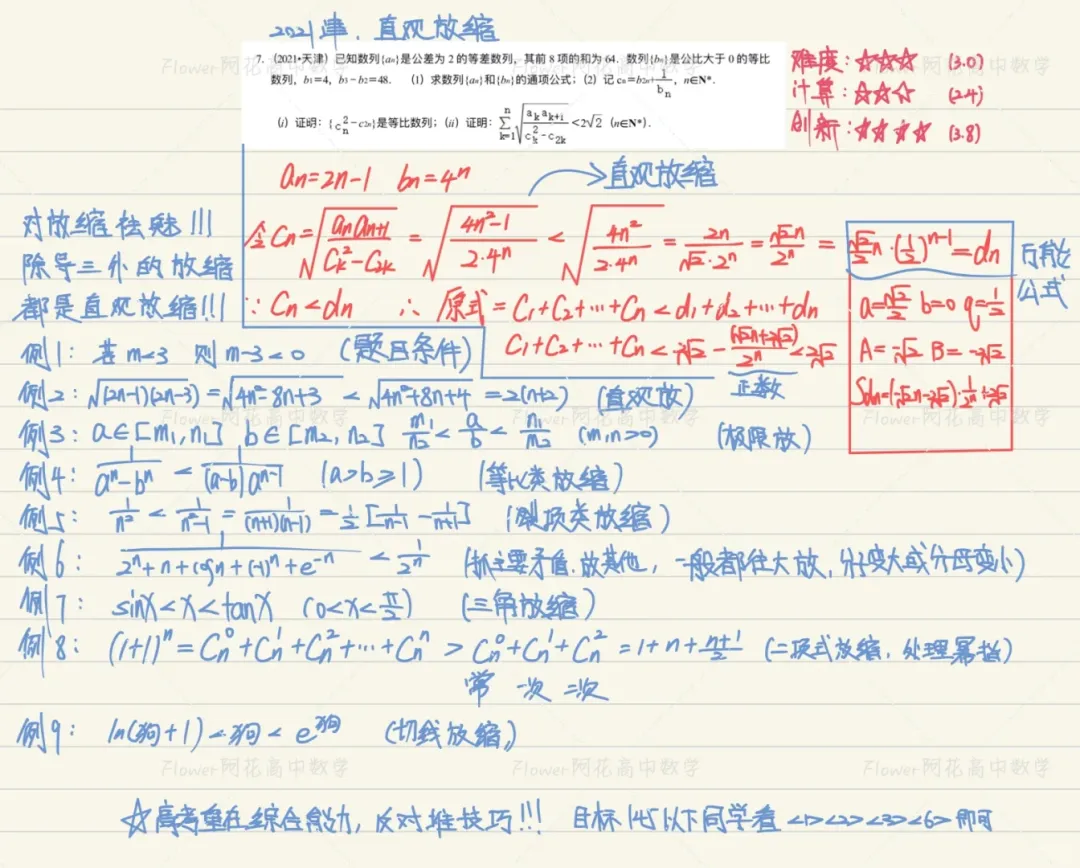 2021津. 直观放缩
7. (2021•天津) 已知数列{aₙ}是公差为 2 的等差数列，其前 8 项的和为 64. 数列{bₙ}是公比大于 0 的等比
数列，b₁=4，b₃−b₂=48. (1) 求数列{aₙ}和{bₙ}的通项公式；(2) 记 cₙ=b₂ₙ+1/bₙ，n∈N*.
(i) 证明：{cₙ²−c₂ₙ}是等比数列；(ii) 证明：∑ₖ₌₁ⁿ√(aₖaₖ₊₁/(cₖ²−c₂ₖ))<2√2 (n∈N*).
难度：☆☆☆ (3.0)
计算：☆☆☆ (2.4)
创新：☆☆☆☆ (3.8)
aₙ=2n−1 bₙ=4ⁿ
直观放缩
令Cₙ=√(aₙaₙ₊₁/(Cₖ²−C₂ₖ)) = √((4n²−1)/(2·4ⁿ)) < √(4n²/(2·4ⁿ)) = 2n/(√2·2ⁿ) = √2n/2ⁿ = √2/2 n·(1/2)ⁿ⁻¹=dₙ
万能公式
∵ Cₙ<dₙ ∴ 原式=C₁+C₂+⋯+Cₙ<d₁+d₂+⋯+dₙ
C₁+C₂+⋯+Cₙ<2√2−(√2n+2√2)/2ⁿ<2√2
正数
a=√2/2 b=0 q=1/2
A=−√2 B=−2√2
Sdₙ=(−√2n−2√2)·1/2ⁿ+2√2
对放缩祛魅!!!
除导三外的放缩
都是直观放缩!!!
例1：若m<3 则 m−3<0 (题目条件)
例2：√((2n−1)(2n−3))=√(4n²−8n+3) <√(4n²+8n+4) =2(n+2) (直观放)
例3：a∈[m₁,n₁] b∈[m₂,n₂] m₁/n₂<a/b<n₁/m₂ (m,n>0) (极限放)
例4：1/(aⁿ−bⁿ) < 1/((a−b)aⁿ⁻¹) (a>b≥1) (等比类放缩)
例5：1/n² < 1/(n²−1) = 1/((n+1)(n−1)) = 1/2[1/(n−1)−1/(n+1)] (裂项类放缩)
例6：1/(2ⁿ+n+lgn+(−1)ⁿ+e⁻ⁿ) < 1/2ⁿ (抓主要矛盾.放其他，一般都往大放，分子变大或分母变小)
例7：sinx<x<tanx (0<x<π/2) (三角放缩)
例8：(1+1)ⁿ=Cₙ⁰+Cₙ¹+Cₙ²+⋯+Cₙⁿ > Cₙ⁰+Cₙ¹+Cₙ² =1+n+ (二项式放缩，处理幂指)
常 一次 二次
例9：ln(狗+1)<狗<e^狗 (切线放缩)
☆高考重在综合能力，反对堆技巧!!! 目标145以下同学看<1><2><3><6>即可
Flower阿花高中数学
Flower阿花高中数学
Flower阿花高中数学